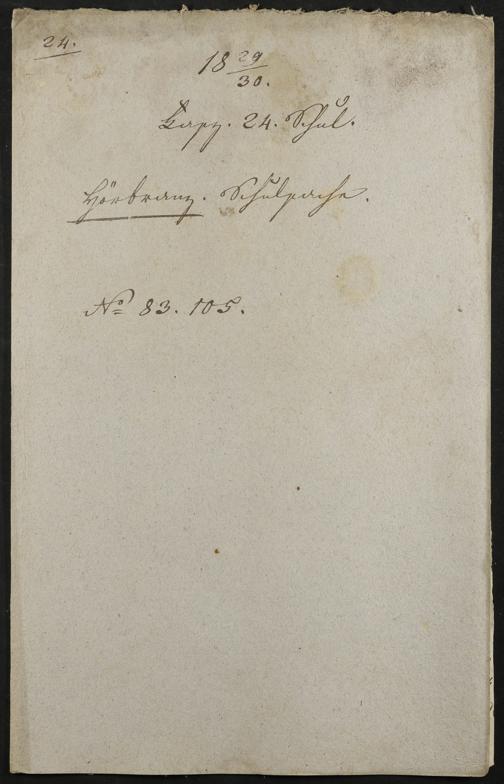 24.
18 29/30.
Fasz. 24. Schul.
Hörbranz. Schulsache.
No 83. 105.